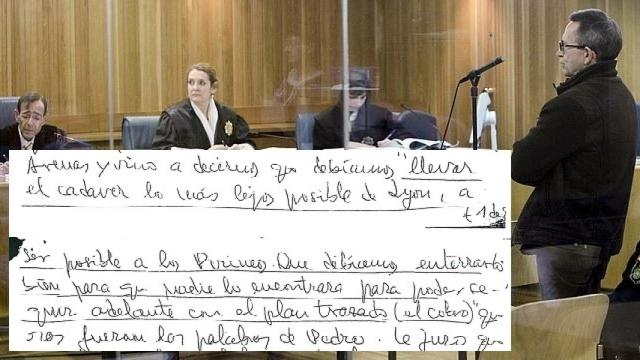 Arenas y vino a decirnos que debíamos "llevar
el cadaver lo más lejos posible de Lyon, a
ser posible a los Pirineos. Que debíamos enterrarlo
bien para que nadie lo encontrara para poder se-
guir adelante con el plan trazado (el cobro)"
fueron las palabras de Pedro. Le juro que